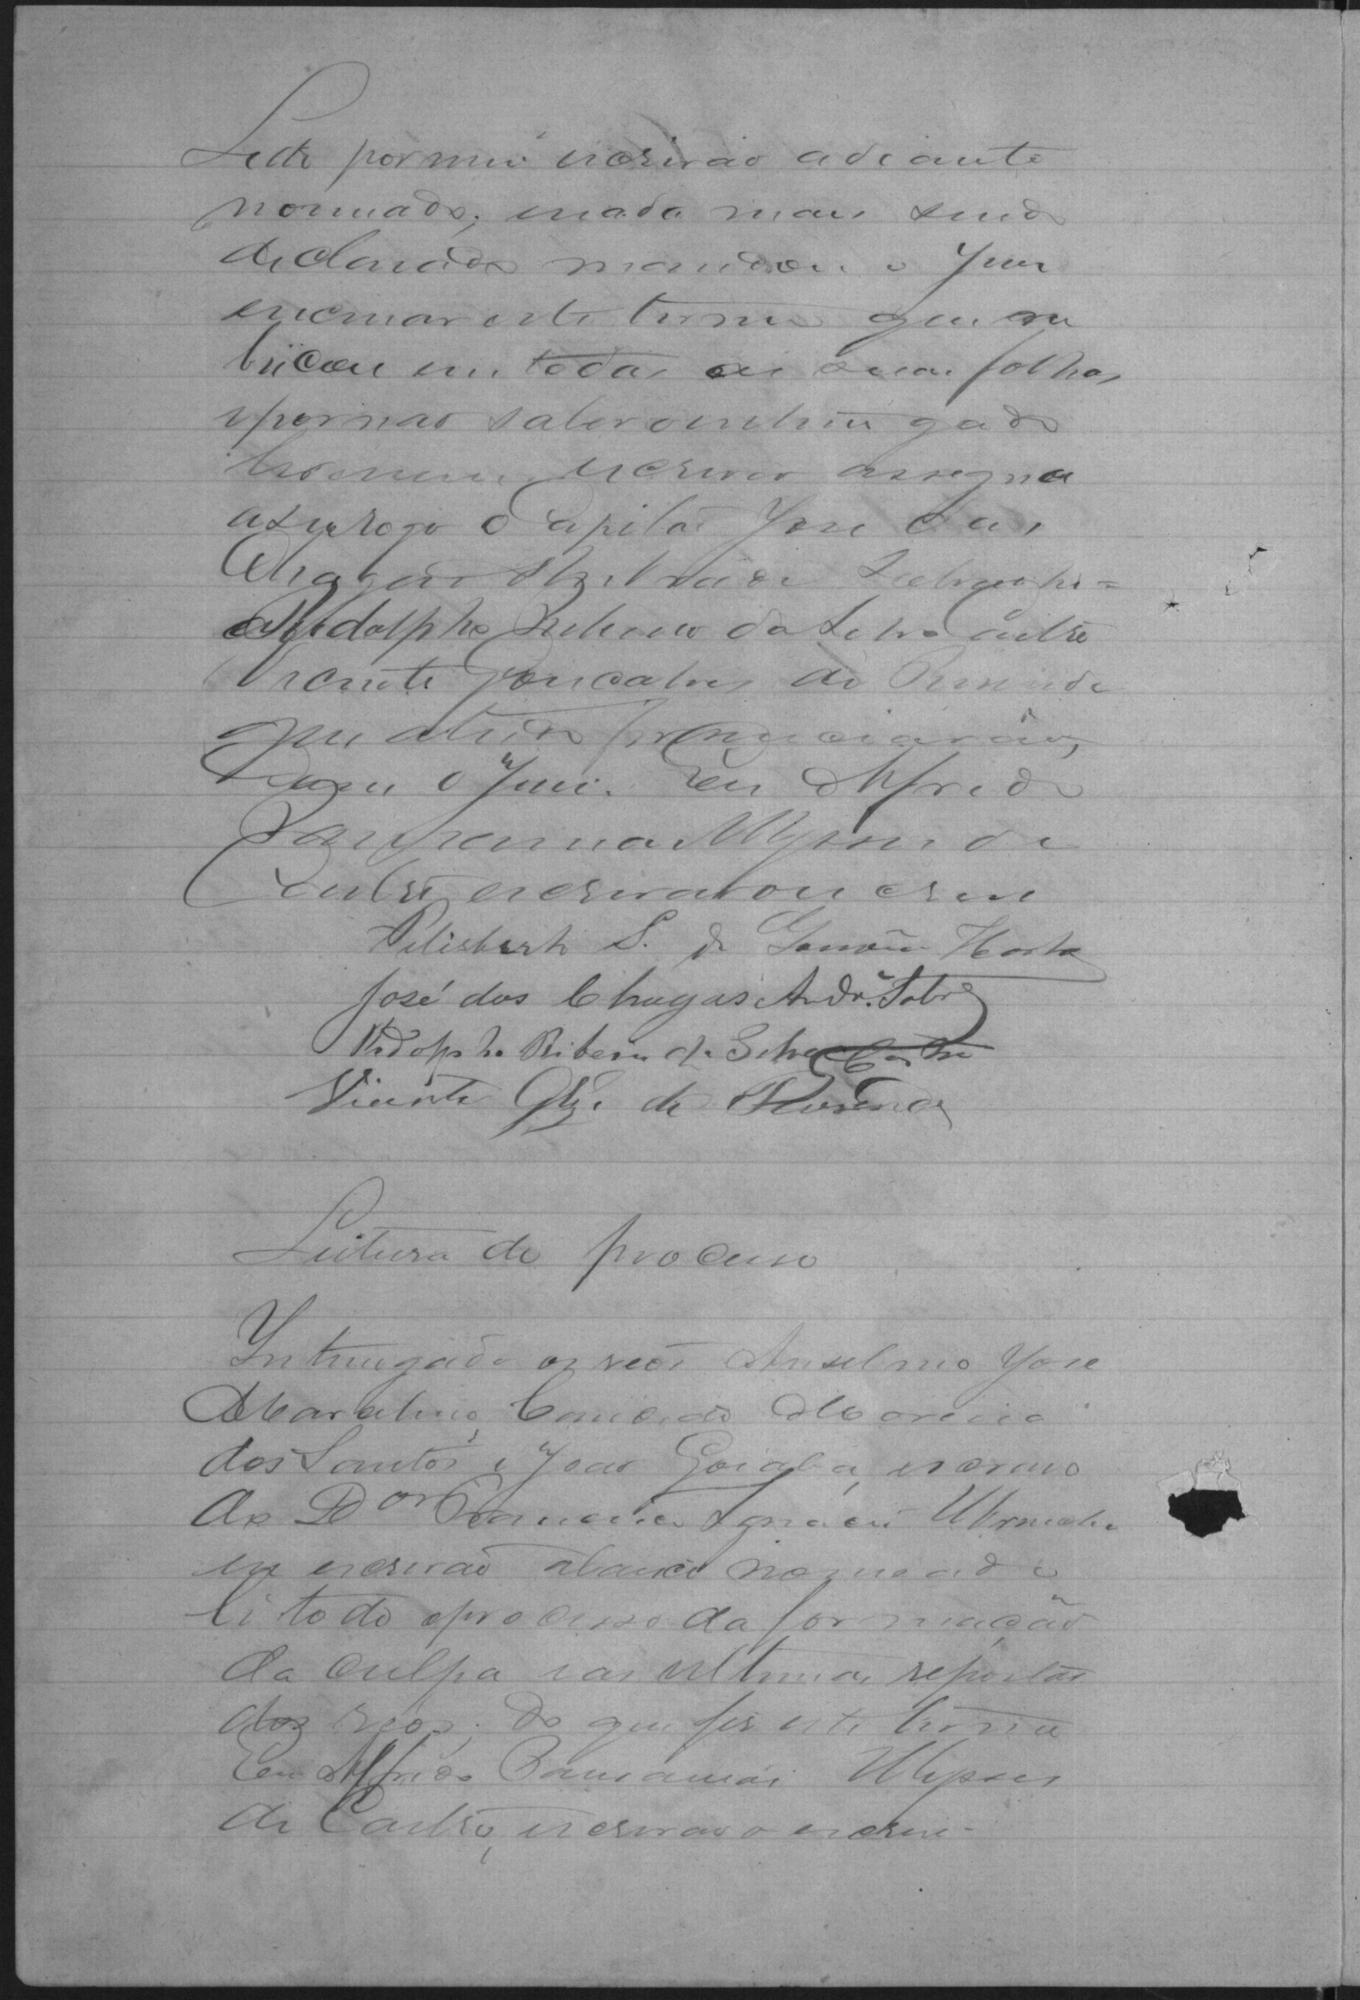 Lido por mim escrivão adiante
nomeado, e nada mais sendo
declarado mandou o Juiz
encerrar este termo que ru
bricou em todas as suas folhas
e por não saber o interrogado
ler nem escrever assigna
a seu rogo o Capitão José das
Chagas Andrade Sobrinho =
Rodolpho Ribeiro da Silva Castro
Vicente Gonçalves de Rezende
que a tudo presenciarão,
com o Juiz. Eu Alfredo
Ulysses de
Castro, escrivão o escrevi
S. de Gouvêa Horta
José das Chagas Andre. Sobro
Rodolpho Ribeiro da Silva Castro
Vicente Glz. de Rezende
Leitura do processo
Interrogado os reos Anselmo José
Marcelino, Candido Moreira
dos Santos e João Goiaba, escravo
do Dor Francisco Ignacio
eu escrivão abaixo nomeado
li todo o processo da formação
da culpa e as ultimas repostas
dos reos; do que fis este termo
Eu Alfredo Ulysses
de Castro, escrivão o escrevi.